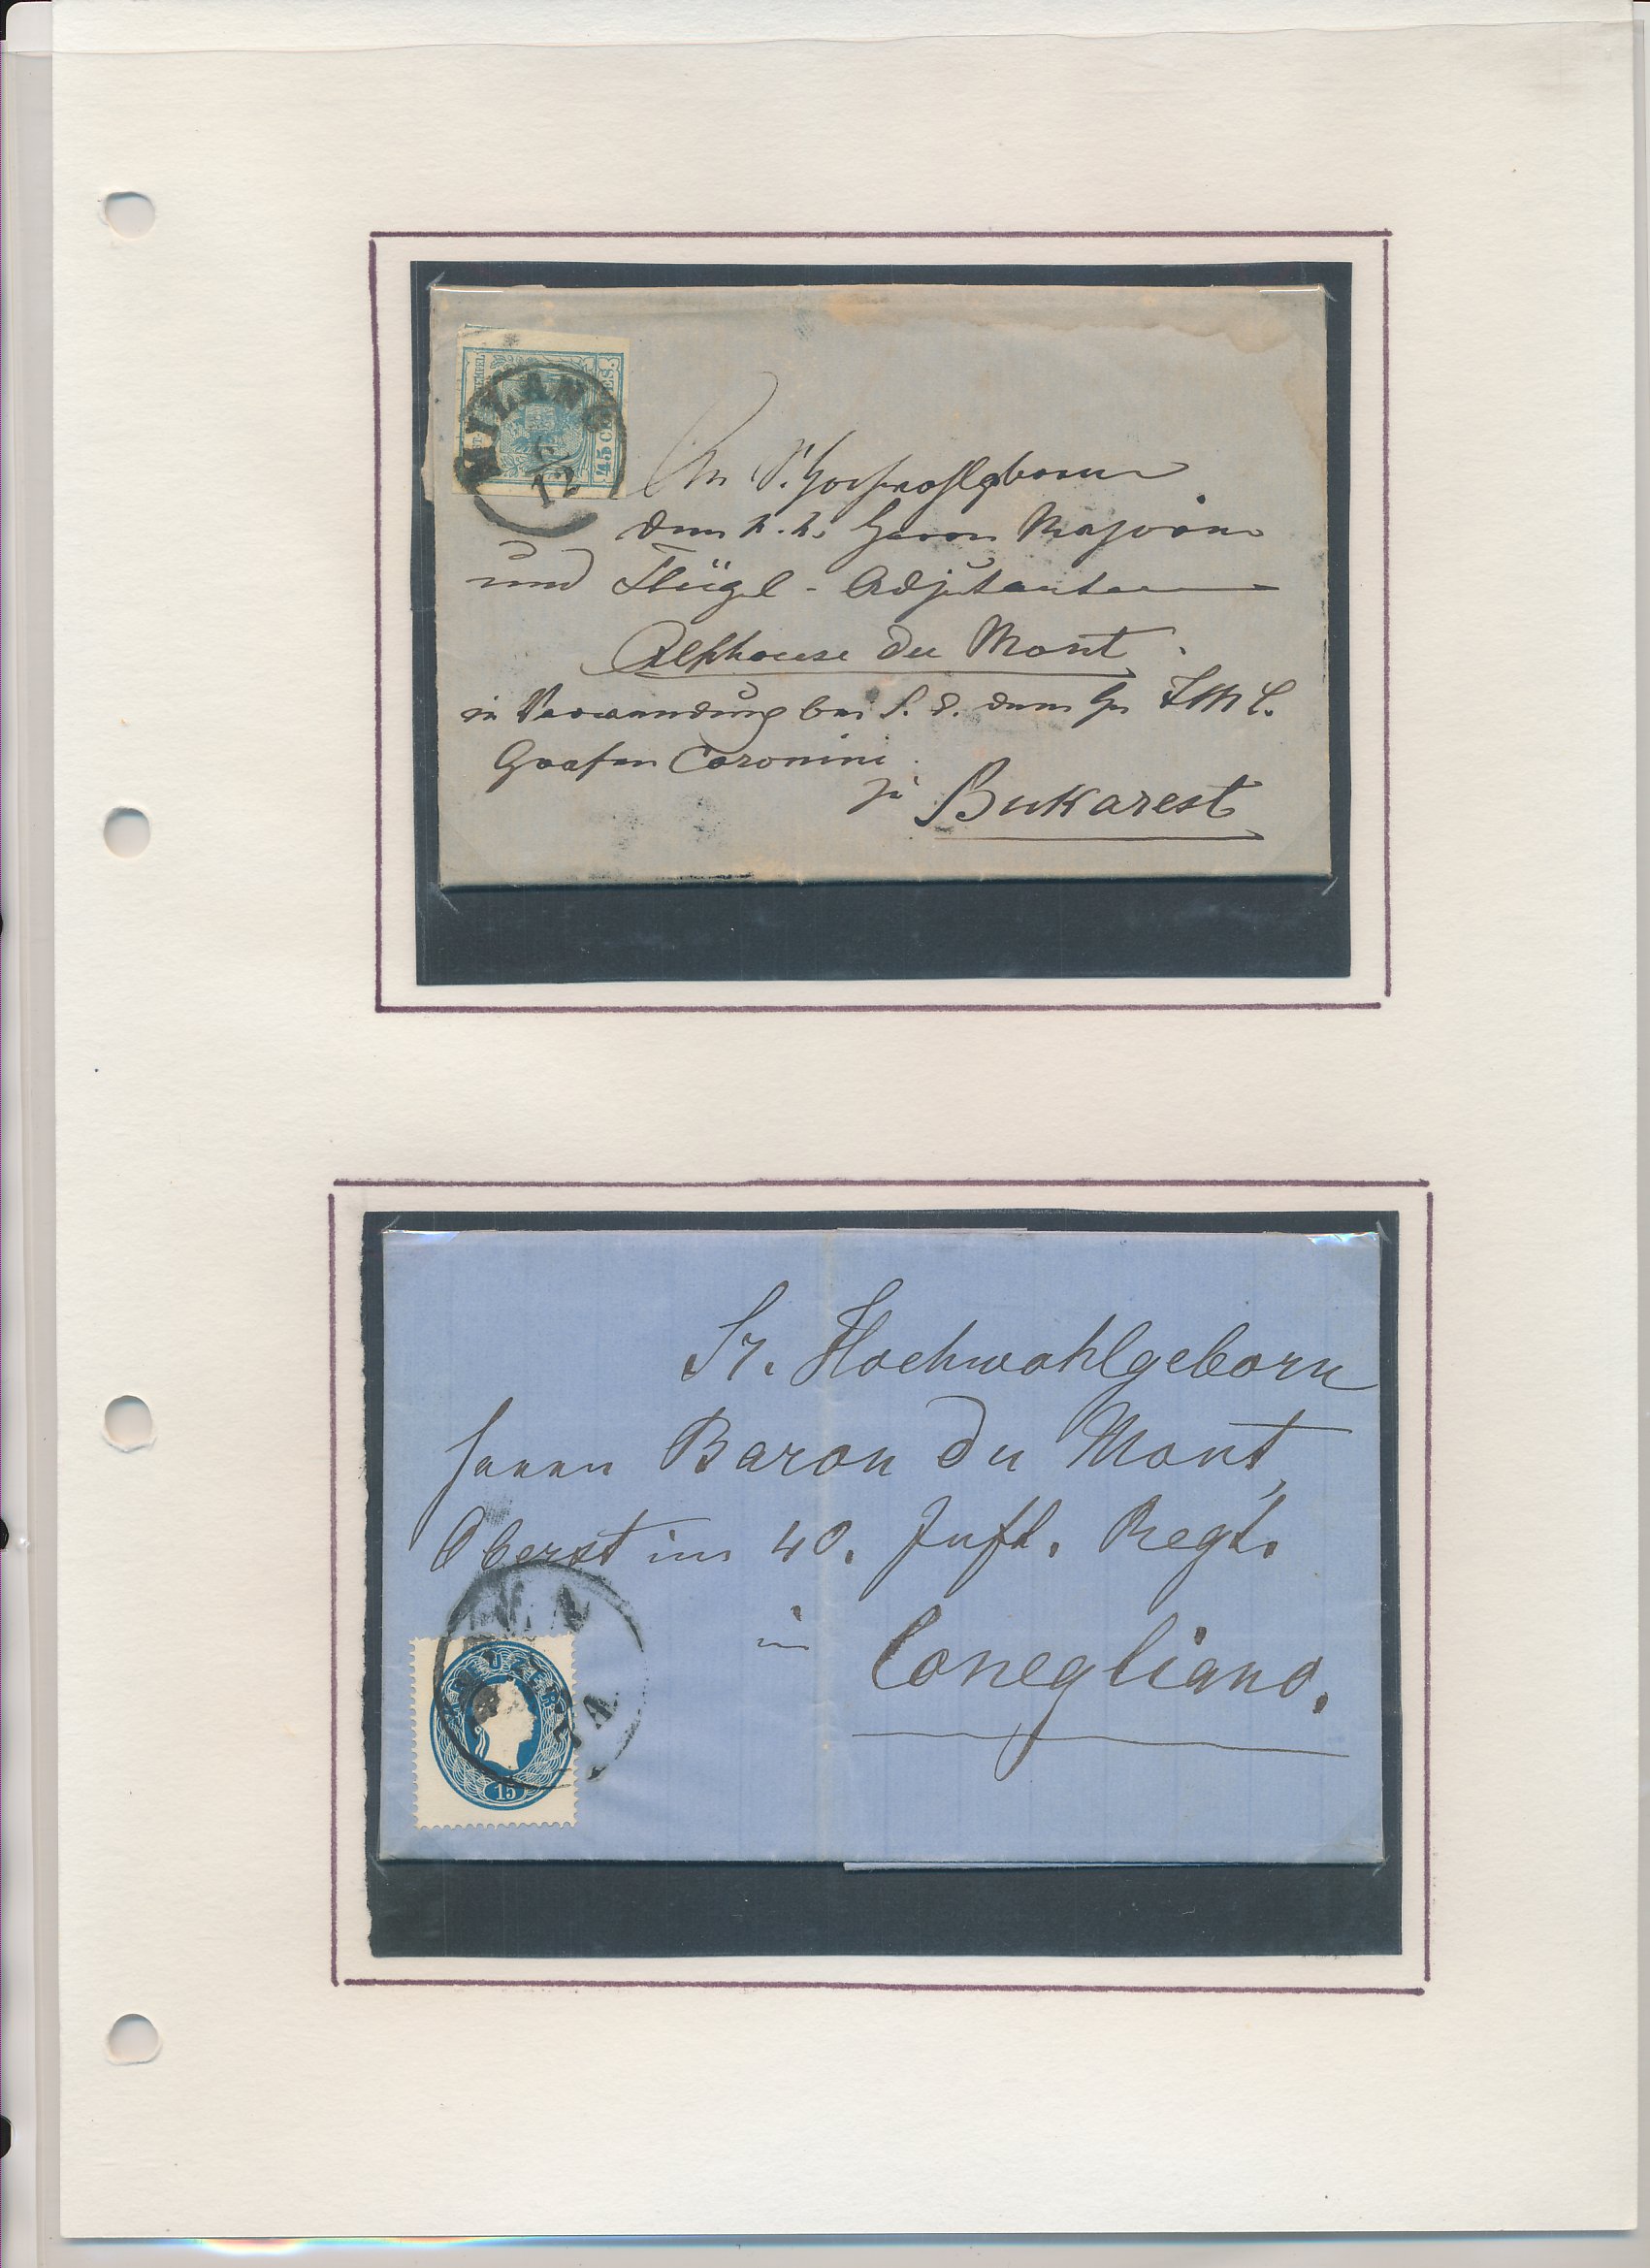 KKPOST-STEMPEL
45 CENTES.
MILANO
6/12
An S. Hochwohlgeborn
dem k. k. Herrn Majoren
und Flügel-Adjutanten
Alphonse du Mont.
in Verwendung bei S. E. dem Hn FML.
Grafen Coronini.
zu Bukarest
Sr. Hochwohlgeborn
Herrn Baron du Mont,
Oberst im 40. Inft. Regt.
in Conegliano.
KREUZER
15